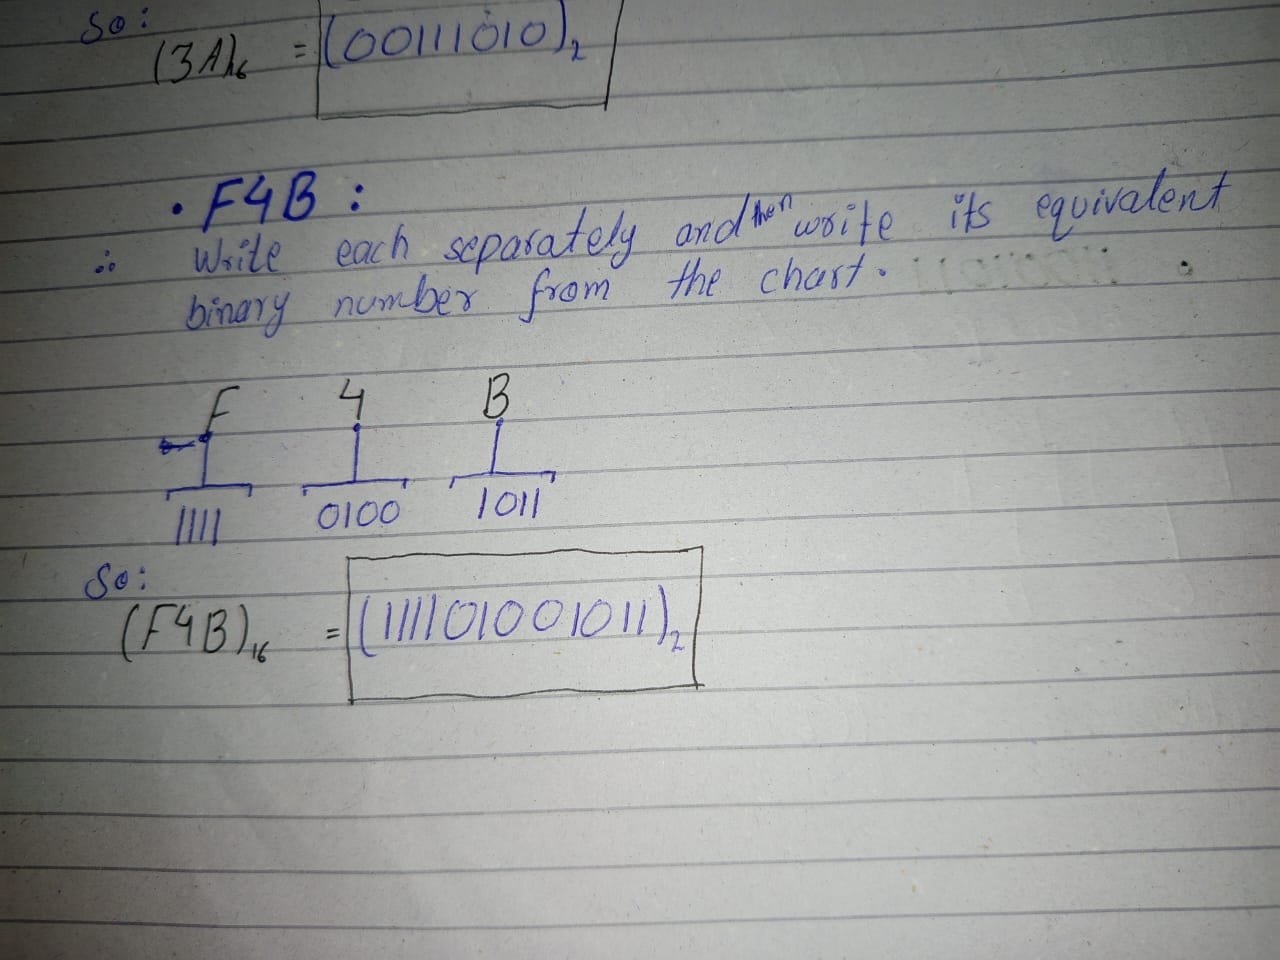 So:
(3A)16 = (00111010)2
• F4B :
∴ Write each separately and then write its equivalent
binary number from the chart.
F 4 B
1111 0100 1011
So:
(F4B)16 = (111101001011)2